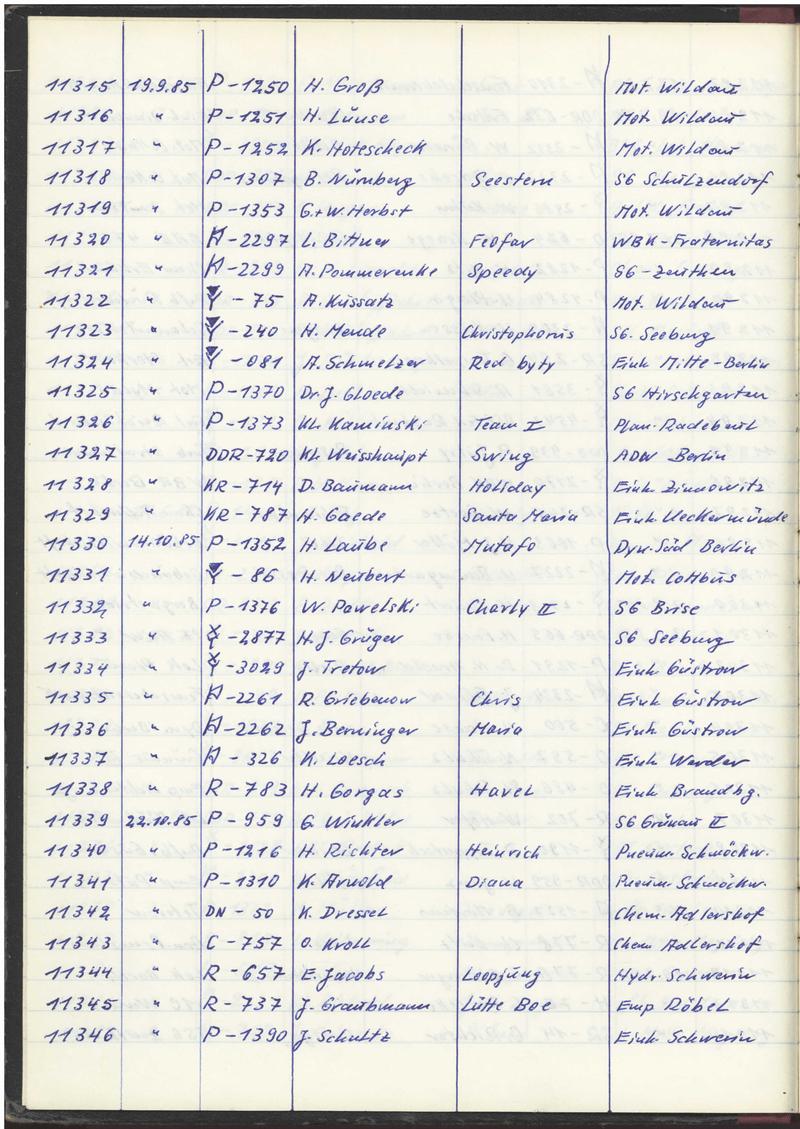 11315 19.9.85 P-1250 H. Groß Mot. Wildau
11316 " P-1251 H. Lünse Mot. Wildau
11317 " P-1252 K. Hotescheck Mot. Wildau
11318 " P-1307 B. Nürnberg Seestern SG Schulzendorf
11319 " P-1353 G.+W. Herbst Mot. Wildau
11320 " A-2297 L. Bittner Feofar WBK-Fraternitas
11321 " A-2299 A. Pommerenke Speedy SG-Zeuthen
11322 " Y-75 A. Kussatz Mot. Wildau
11323 " Y-240 H. Mende Christophorus SG. Seeburg
11324 " Y-081 A. Schmelzer Red byty Einh. Mitte-Berlin
11325 " P-1370 Dr. J. Gloede SG Hirschgarten
11326 " P-1373 Kl. Kaminski Team I Plan. Radebeul
11327 " DDR-720 Kl. Weisshaupt Swing ADW Berlin
11328 " KR-714 D. Baumann Holiday Einh. Zinnowitz
11329 " KR-787 H. Gaede Santa Maria Einh. Ueckermünde
11330 14.10.85 P-1352 H. Laube Mutafo Dyn. Süd Berlin
11331 " Y-86 H. Neubert Mot. Cottbus
11332 " P-1376 W. Pawelski Charly II SG Brise
11333 " Y-2877 H.J. Grüger SG Seeburg
11334 " Y-3029 J. Tretow Einh Güstrow
11335 " A-2261 R. Griebenow Chris Einh Güstrow
11336 " A-2262 J. Berninger Maria Einh. Güstrow
11337 " A-326 K. Loesch Einh Werder
11338 " R-783 H. Gorgas Havel Einh. Brandbg.
11339 22.10.85 P-959 G. Winkler SG Grünau II
11340 " P-1216 H. Richter Heinrich Pneum. Schmöckw.
11341 " P-1310 K. Arnold Diana Pneum. Schmöckw.
11342 " DN-50 K. Dressel Chem. Adlershof
11343 " C-757 O. Kroll Chem Adlershof
11344 " R-657 E. Jacobs Loopjung Hydr. Schwerin
11345 " R-737 J. Graubmann Lütte Boe Emp Röbel
11346 " P-1390 J. Schultz Einh. Schwerin